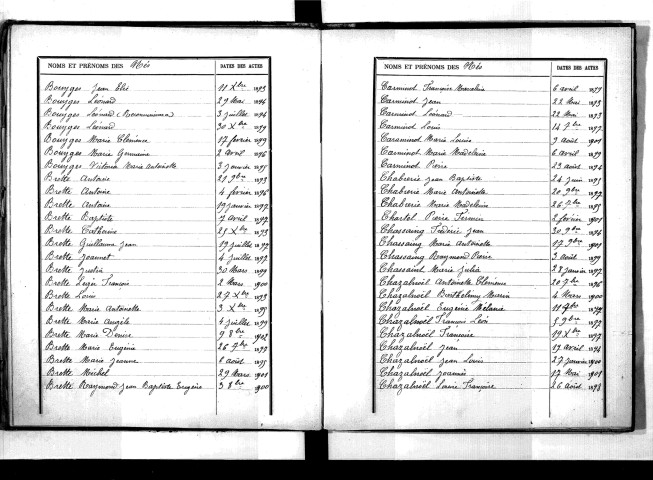 NOMS ET PRÉNOMS DES Nés DATES DES ACTES
Bouyges Jean Elie 11 Xbre 1893
Bouyges Léonard 29 Mai 1896
Bouyges Léonard 3 juillet
Bouyges Léonard 30 Xbre 1899
Bouyges Marie Clémence 17 février 1899
Bouyges Marie Germaine 2 avril 1896
Bouyges Victoria Marie Antoinette 3 janvier 1895
Brette Antoine 21 9bre 1893
Brette Antoine 4 février 1896
Brette Antoine 19 janvier 1897
Brette Baptiste 7 avril 1897
Brette Catherine 21 Xbre 1893
Brette Guillaume Jean 19 juillet 1897
Brette Joannet 4 juillet 1897
Brette Julia 30 Mars 1899
Brette Léger François 2 Mars 1900
Brette Louis 27 Xbre 1893
Brette Marie Antoinette 3 Xbre 1895
Brette Marie Angèle 4 juillet 1899
Brette Marie Denise 9 8bre 1902
Brette Marie Eugénie 26 7bre 1899
Brette Marie Jeanne 8 août 1895
Brette Michel 29 Mars 1901
Brette Raymond Jean Baptiste Eugène 3 8bre 1900
NOMS ET PRÉNOMS DES Nés DATES DES ACTES
Carminot François Marcelin 6 avril 1899
Carminot Jean 22 Mai 1893
Carminot Léonard 22 Mai 1893
Carminot Louis 14 7bre 1897
Carminot Marie Louise 9 août 1901
Carminot Marie Madeleine 6 avril 1899
Carminot Pierre 23 août 1894
Chabrerie Jean Baptiste 24 juin 1895
Chabrerie Marie Antoinette 20 9bre 1897
Chabrerie Marie Madeleine 26 7bre 1895
Chartel Pierre Firmin 2 février 1901
Chassaing Frédéric Jean 30 9bre 1896
Chassaing Marie Antoinette 17 9bre 1901
Chassaing Raymond Pierre 3 août 1899
Chassaint Marie Julia 28 janvier 1897
Chazalnoël Antoinette Clémence 20 7bre 1896
Chazalnoël Barthélemy Marie 4 Mars 1900
Chazalnoël Eugénie Mélanie 11 7bre
Chazalnoël François Léon 5 9bre 1897
Chazalnoël Françoise 19 Xbre 1897
Chazalnoël Jean 19 avril 1894
Chazalnoël Jean Louis 27 janvier 1900
Chazalnoël Joannès 17 Mai 1901
Chazalnoël Louise Françoise 26 août 1898